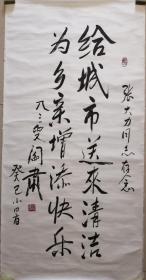 张大力同志存念
给城市送來清洁
为乡亲增添快乐
八三叟阎肃
癸巳小暑